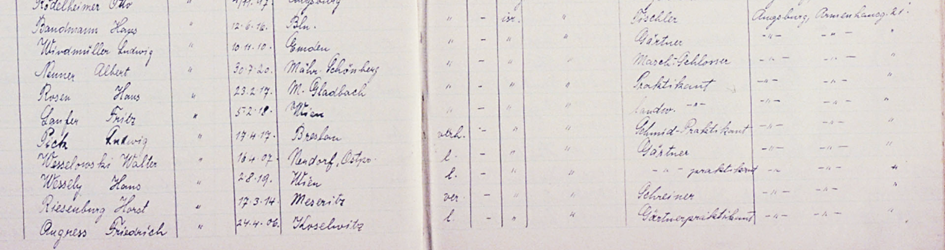 Rödelheimer Otto " Augsburg " - isr. " Tischler Augsburg,
Bandmann Hans " 12.6.16. Bln. " - " " Gärtner - " - " -
Windmüller Ludwig " 10.11.10. Emden " - " " Masch. Schlosser - " - " -
Neuner Albert " 30.7.20. Mähr. Schönberg " - " " Praktikant - " - " -
Rosen Hans " 23.2.17. M. Gladbach " - " " landw. - " - - " - " -
Laufer Fritz " 5.2.18. Wien " - " " Schmid-Praktikant - " - " -
Ludwig " 17.4.17. Breslau verh. - " " Gärtner - " - " -
Wesselowski Walter " 16.4.07. Ostpr. l. - " " - " - praktikant - " - " - "
Wessely Hans " 2.8.19. Wien l. - " "
Riesenburg Horst " 17.3.14 Meseritz ver. - " " Schreiner - " - " - "
Angress Friedrich " 24.4.06. l - " " Gärtnerpraktikant - " - " - "